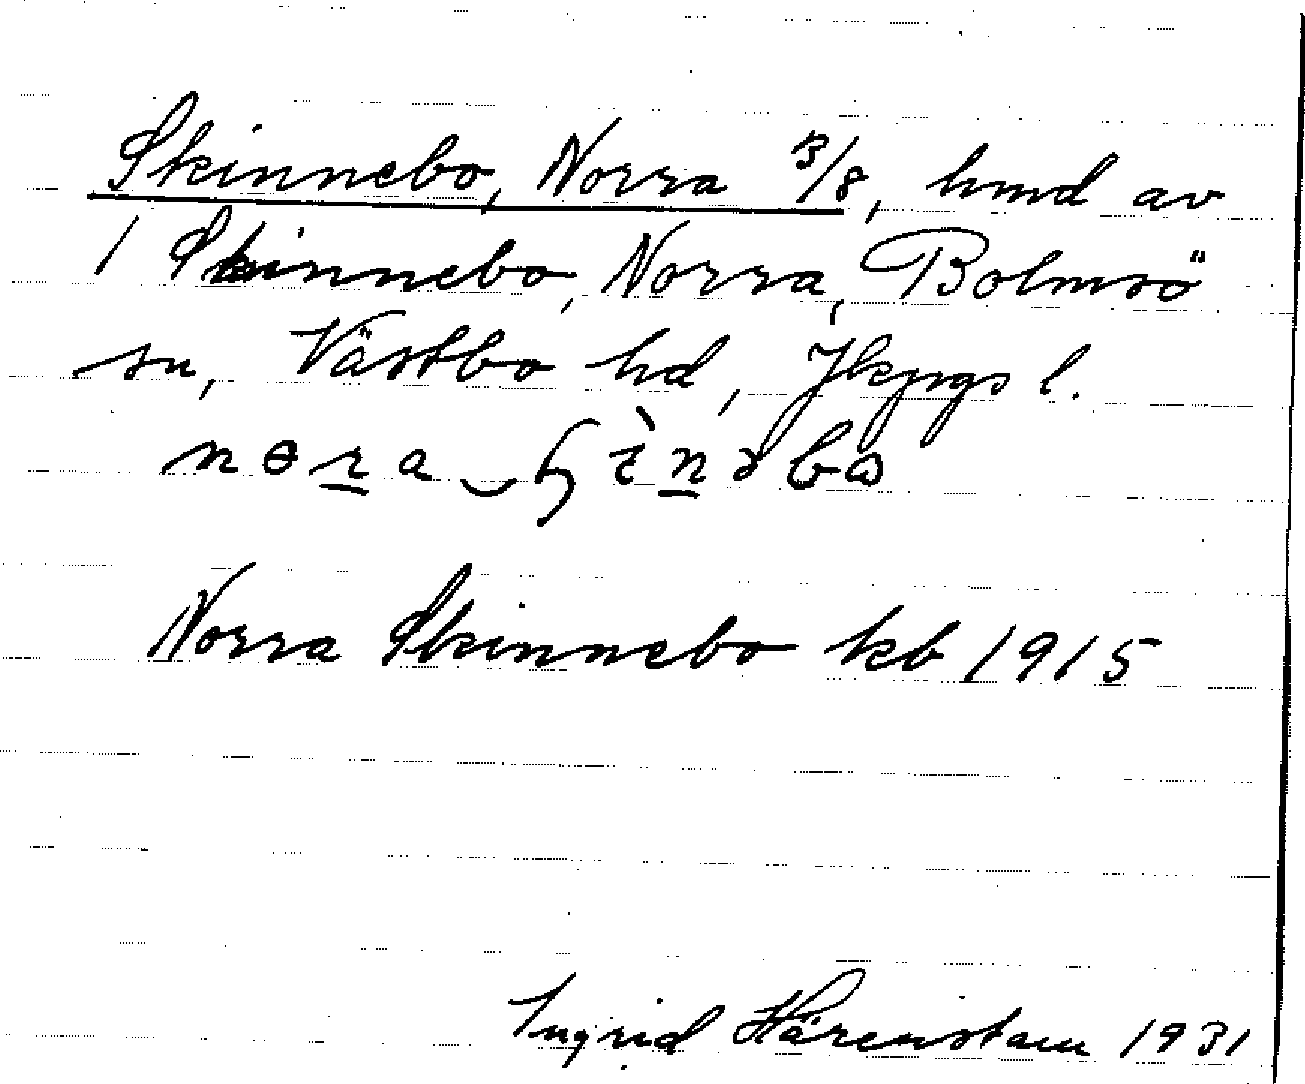 Skinnebo, Norra 3/8, hmd av
1 Skinnebo, Norra, Bolmsö
sn, Västbo hd, Jkpgs l.
Norra Skinnebo kb 1915
Ingrid Härenstam 1931